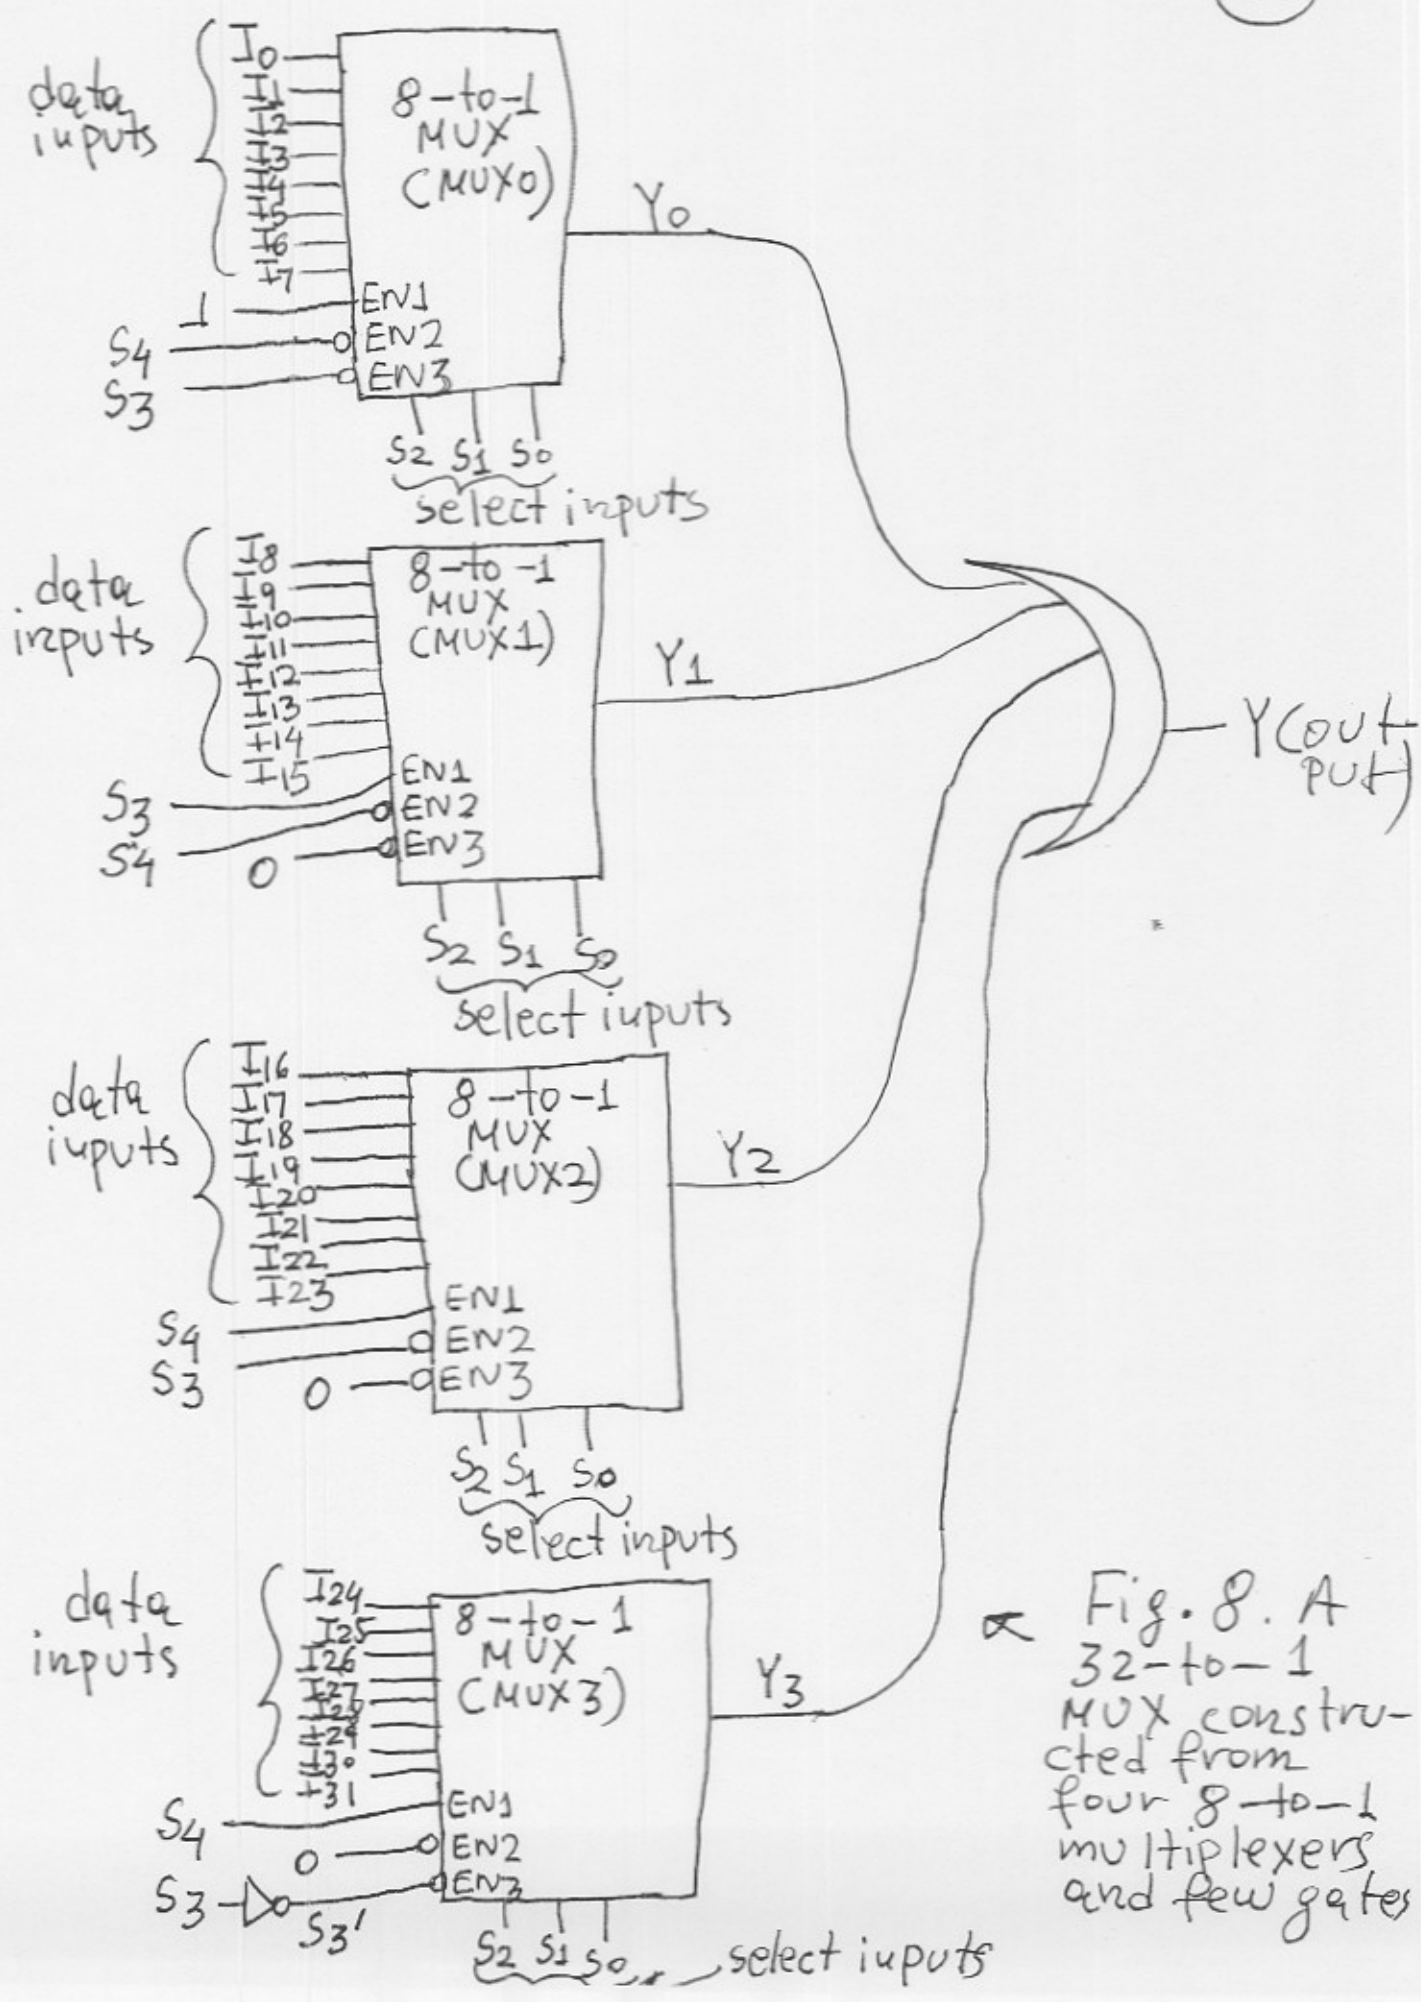 data
inputs
I0
I1
I2
I3
I4
I5
I6
I7
8-to-1
MUX
(MUX0)
Y0
1
EN1
S4
EN2
S3
EN3
S2 S1 S0
select inputs
data
inputs
I8
I9
I10
I11
I12
I13
I14
I15
8-to-1
MUX
(MUX1)
Y1
Y(out-
put)
S3
EN1
S4
EN2
0
EN3
S2 S1 S0
select inputs
data
inputs
I16
I17
I18
I19
I20
I21
I22
I23
8-to-1
MUX
(MUX2)
Y2
S4
EN1
S3
EN2
0
EN3
S2 S1 S0
select inputs
data
inputs
I24
I25
I26
I27
I28
I29
I30
I31
8-to-1
MUX
(MUX3)
Y3
S4
EN1
0
EN2
S3
S3'
EN3
S2 S1 S0
select inputs
Fig. 8. A
32-to-1
MUX constru-
cted from
four 8-to-1
multiplexers
and few gates